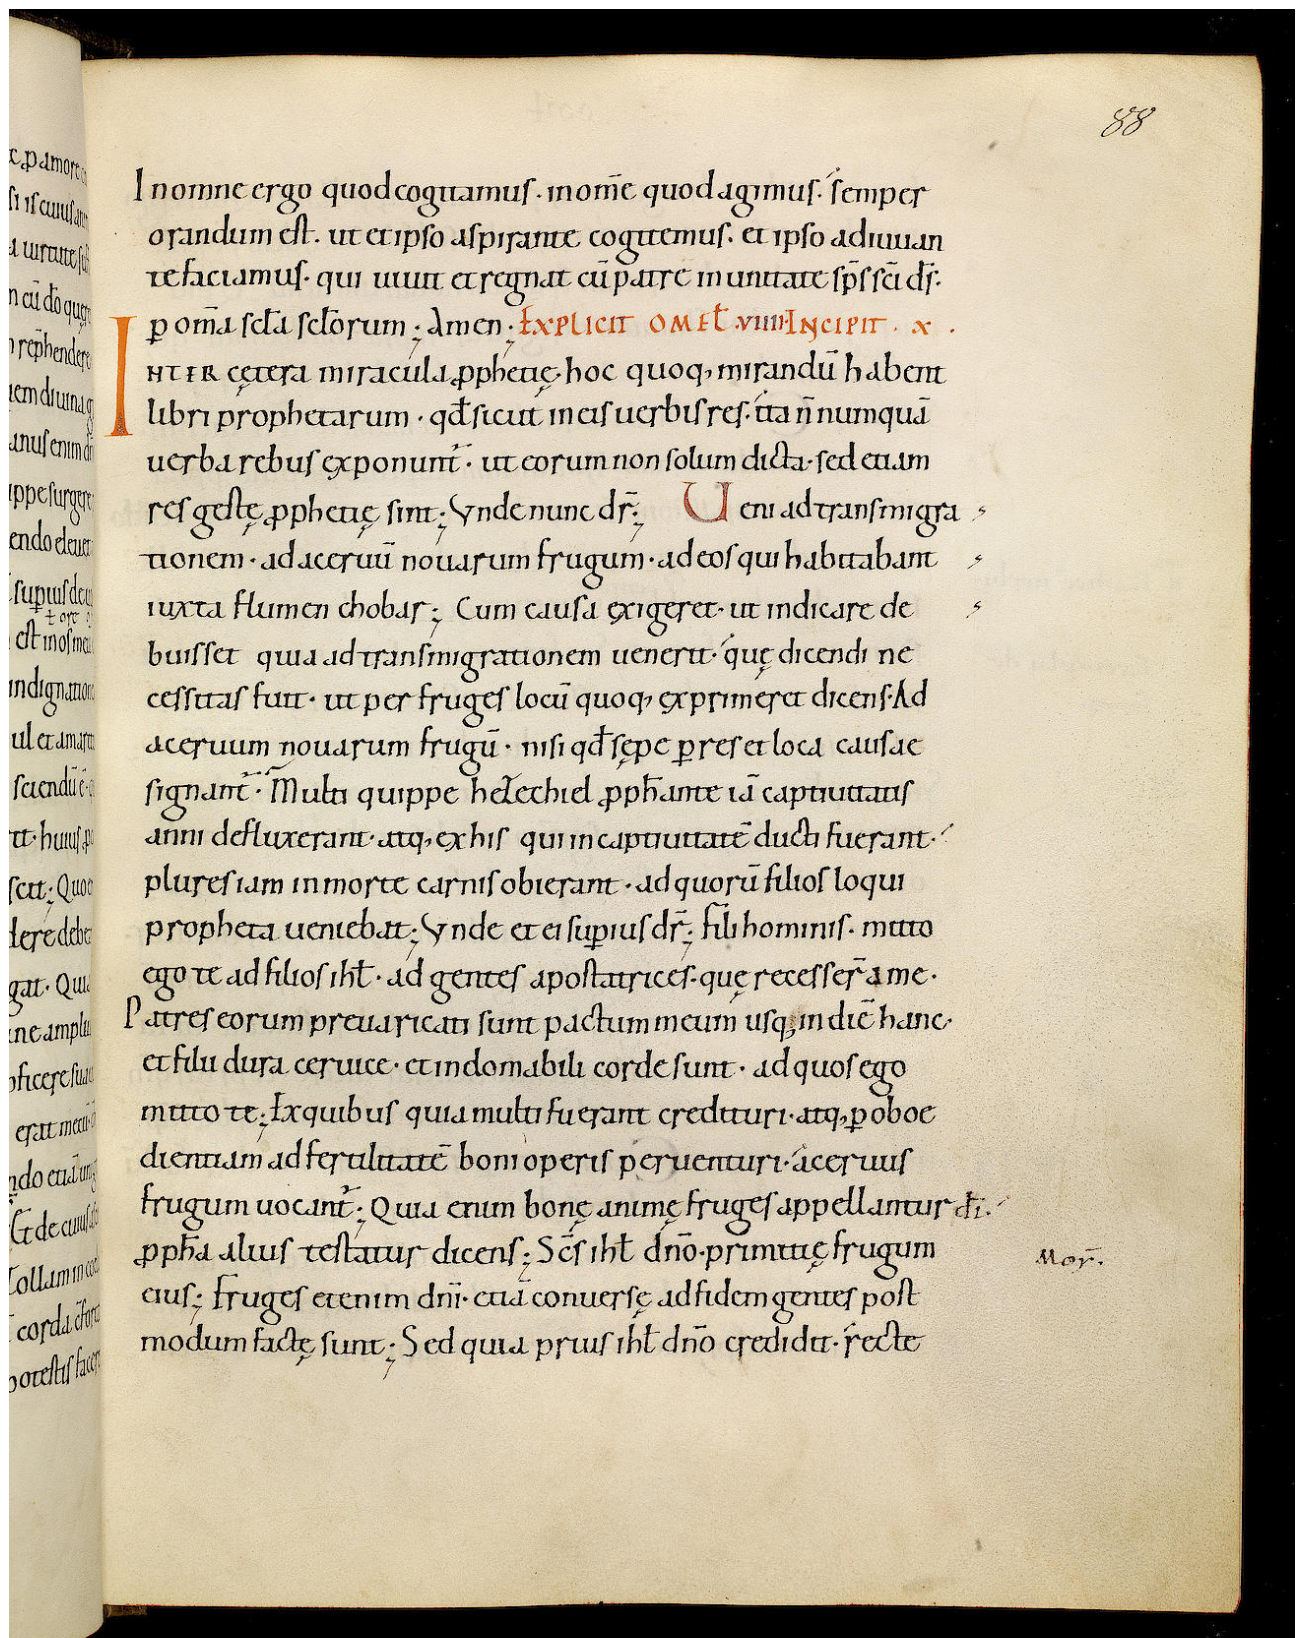 88
In omne ergo quod cogitamus · in om̄e quod agimus · semper
orandum est . ut et ipso aspirante cogitemus · et ipso adiuuan
te faciamus · qui uiuit et regnat cū patre in unitate sp̄s sc̄i d̄s ·
ꝑ om̄a scl̄a scl̄orum ; Amen ; EXPLICIT OMEL̄ · VIIII · INCIPIT · X ·
INTER cętera miracula ꝓphetię · hoc quoq, mirandū habent
libri prophetarum · qđ sicut in eis uerbis res · ita n̄ numquā
uerba rebus exponunt̄ · ut eorum non solum dicta · sed etiam
res gestę ꝓphetię sint ; Vnde nunc dr̄ ; Ueni ad transmigra
tionem · ad aceruū nouarum frugum · ad eos qui habitabant
iuxta flumen chobar ; Cum causa exigeret · ut indicare de
buisset quia ad transmigrationem uenerit · quę dicendi ne
cessitas fuit · ut per fruges locū quoq, exprimeret dicens · Ad
aceruum nouarum frugū · nisi qđ sępe ꝑ res et loca causae
signant̄ · Multi quippe hezechiel ꝓph̄ante iā captiuitatis
anni defluxerant · atq, ex his qui in captiuitatē ducti fuerant ·
plures iam in morte carnis obierant · ad quorū filios loqui
propheta ueniebat ; Vnde et ei suꝑius dr̄ ; fili hominis · mitto
ego te ad filios ihl̄ · ad gentes apostatrices · quę recesser̄ a me ·
Patres eorum preuaricati sunt pactum meum usq, in diē hanc ·
et filii dura ceruice · et indomabili corde sunt · ad quos ego
mitto te ; Ex quibus quia multi fuerant credituri · atq, ꝑ oboe
dientiam ad fertilitatē boni operis peruenturi · aceruus
frugum uocant̄ ; Quia enim bonę animę fruges appellantur dī ·
ꝓph̄a alius testatur dicens ; Sc̄s ihl̄ dn̄o · primitię frugum
Mor̄ .
eius ; Fruges etenim dn̄i · etiā conuersę ad fidem gentes post
modum factę sunt ; Sed quia prius ihl̄ dn̄o credidit · recte